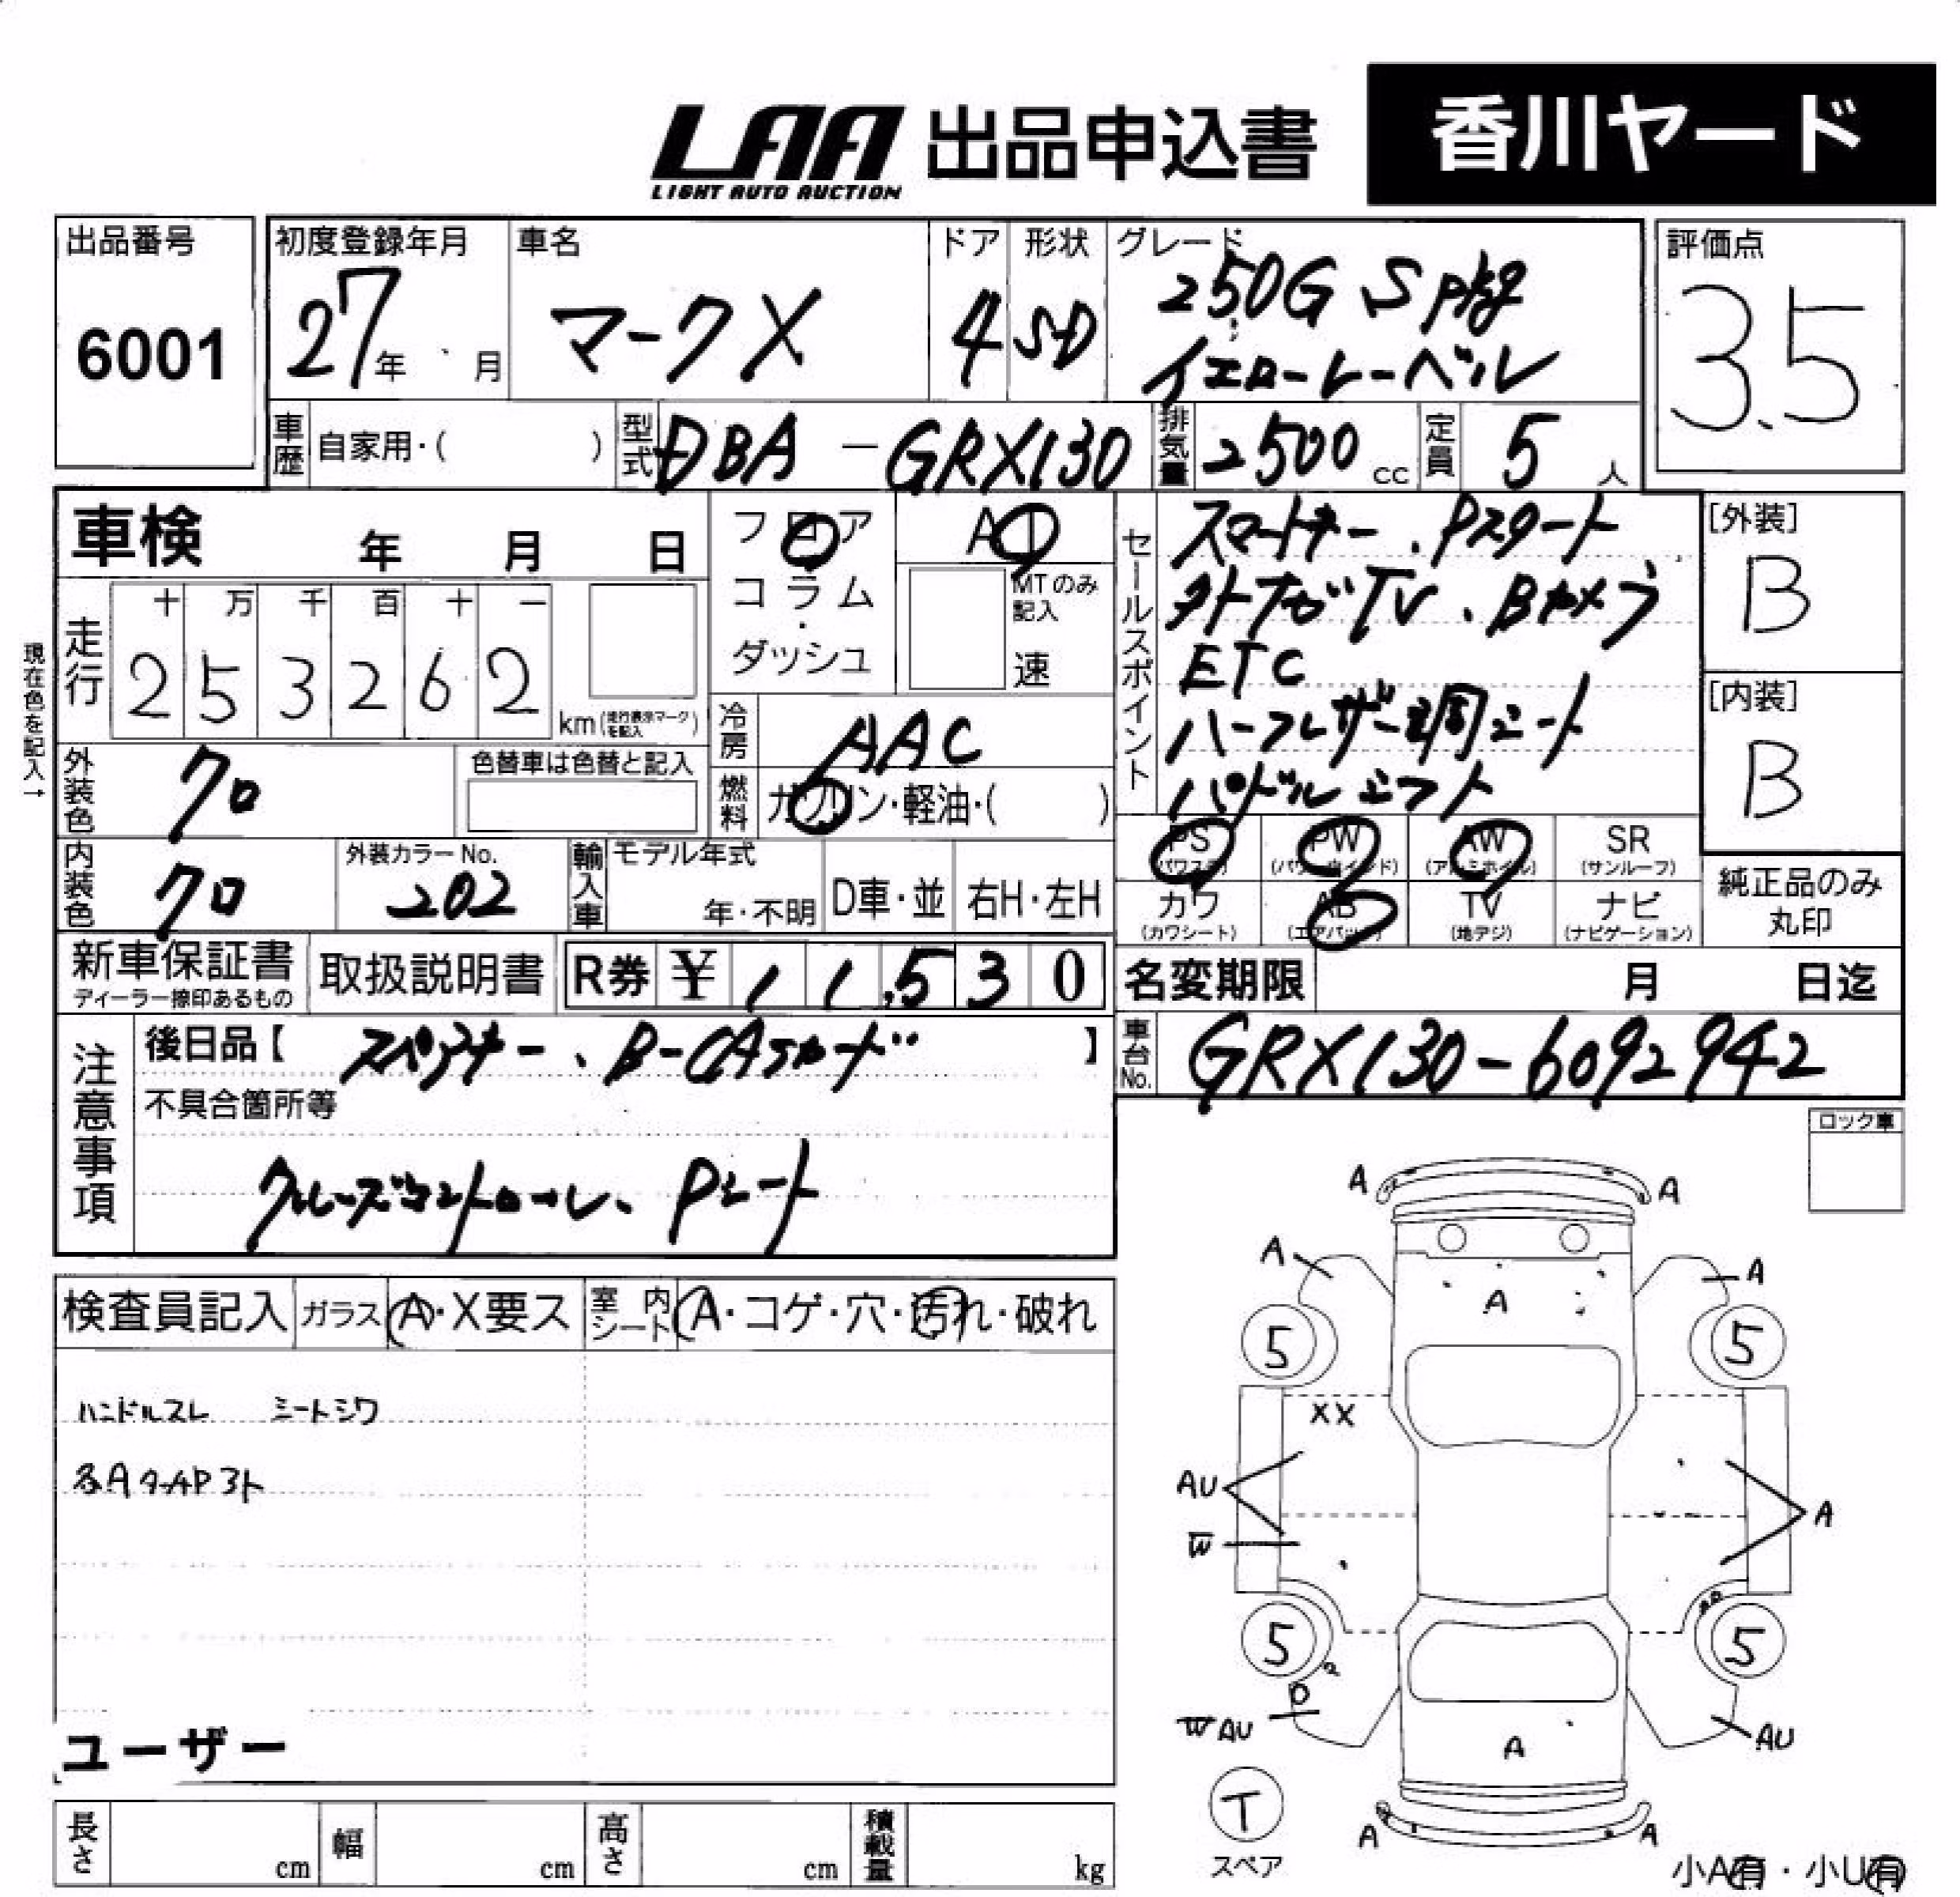 LAA 出品申込書 香川ヤード
LIGHT AUTO AUCTION
出品番号 6001
初度登録年月 27年 月
車名 マークX
ドア 4
形状 SD
グレード 250G S pkg
イエローレーベル
評価点 3.5
車歴 自家用・( )
型式 DBA-GRX130
排気量 2500cc
定員 5人
車検 年 月 日
フロア
コラム
・
ダッシュ
AT
MTのみ記入
速
セールスポイント
スマートキー、Pスタート
外ナビTV、Bカメラ
ETC
ハーフレザー調シート
パドルシフト
[外装] B
[内装] B
現在色を記入→
走行 十 万 千 百 十 一
2 5 3 2 6 2
km(走行表示マークを記入)
冷房 AAC
燃料 ガソリン・軽油・( )
外装色 クロ
色替車は色替と記入
内装色 クロ
外装カラーNo. 202
輸入車 モデル年式
年・不明 D車・並 右H・左H
PS (パワステ)
PW (パワーウインド)
AW (アルミホイル)
SR (サンルーフ)
カワ (カワシート)
AB (エアバッグ)
TV (地デジ)
ナビ (ナビゲーション)
純正品のみ
丸印
新車保証書
ディーラー捺印あるもの
取扱説明書
R券 ¥ 11,530
名変期限 月 日迄
注意事項
後日品【 スペアキー、B-CASカード 】
不具合箇所等
クルーズコントロール、Pシート
車台No. GRX130-6092942
ロック車
検査員記入 ガラス A・X要ス 室内シート A・コゲ・穴・汚れ・破れ
ハンドルスレ シートシワ
各A タッチP ヨト
ユーザー
長さ cm 幅 cm 高さ cm 積載量 kg
A A
A A
A
5 5
XX
AU A
W
5 5
2
D
W AU AU
A
T
スペア
A A
小A有・小U有